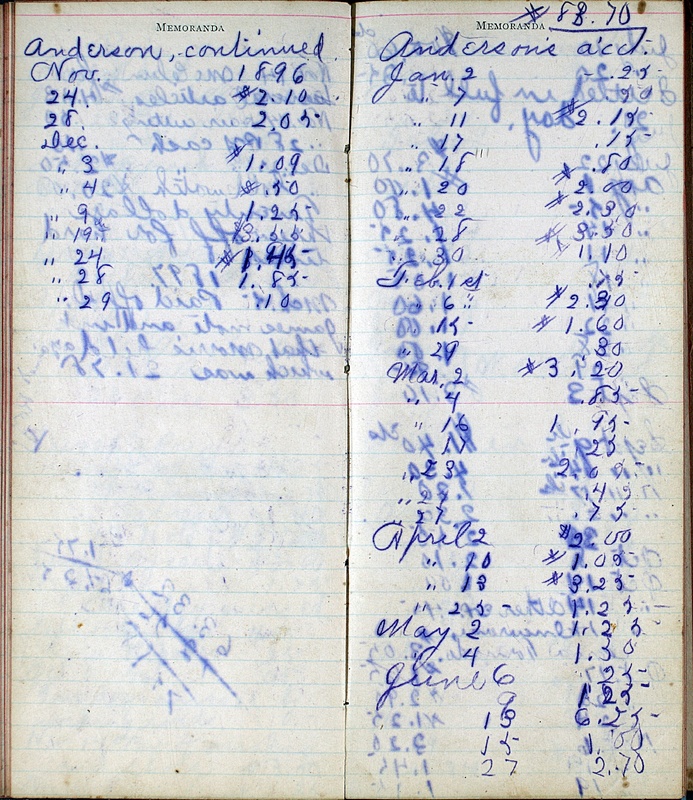 MEMORANDA
Anderson, continued.
Nov. 1896
24 $2.10
28 2.05
Dec.
" 3 $1.09
" 4 $.50
" 9 1.25
" 19 $3.55
" 24 $1.45
" 28 1.85
" 29 .10
$88.70
MEMORANDA
Anderson's acct.
Jan. 2 .25
" 7 .50
" 11 $2.15
" 17 .15
" 18 .80
" 20 $2.00
" 22 $2.30
" 28 $3.50
" 30 1.10
Feb. 1st .15
" 6 " $2.30
" 15 $1.60
" 29 .30
Mar. 2 $3.20
" 4 .85
" 16 1.95
" 17 .25
" 23 2.65
" 27 .45
" 27 .75
April 2 $2.00
" 10 $1.05
" 13 $3.25
" 25 1.25
May 2 1.25
" 4 1.30
June 6 .25
9 1.25
13 6.25
15 1.00
27 2.70